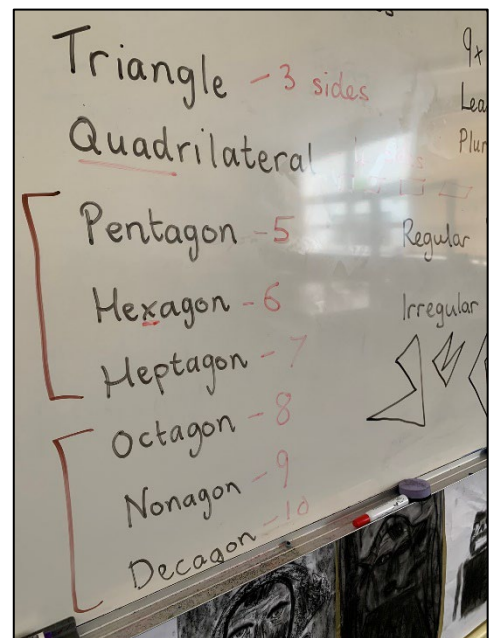 Triangle - 3 sides
Quadrilateral
Pentagon - 5
Hexagon - 6
Heptagon - 7
Octagon - 8
Nonagon - 9
Decagon - 10
9x
Lea
Plur
Regular
Irregular